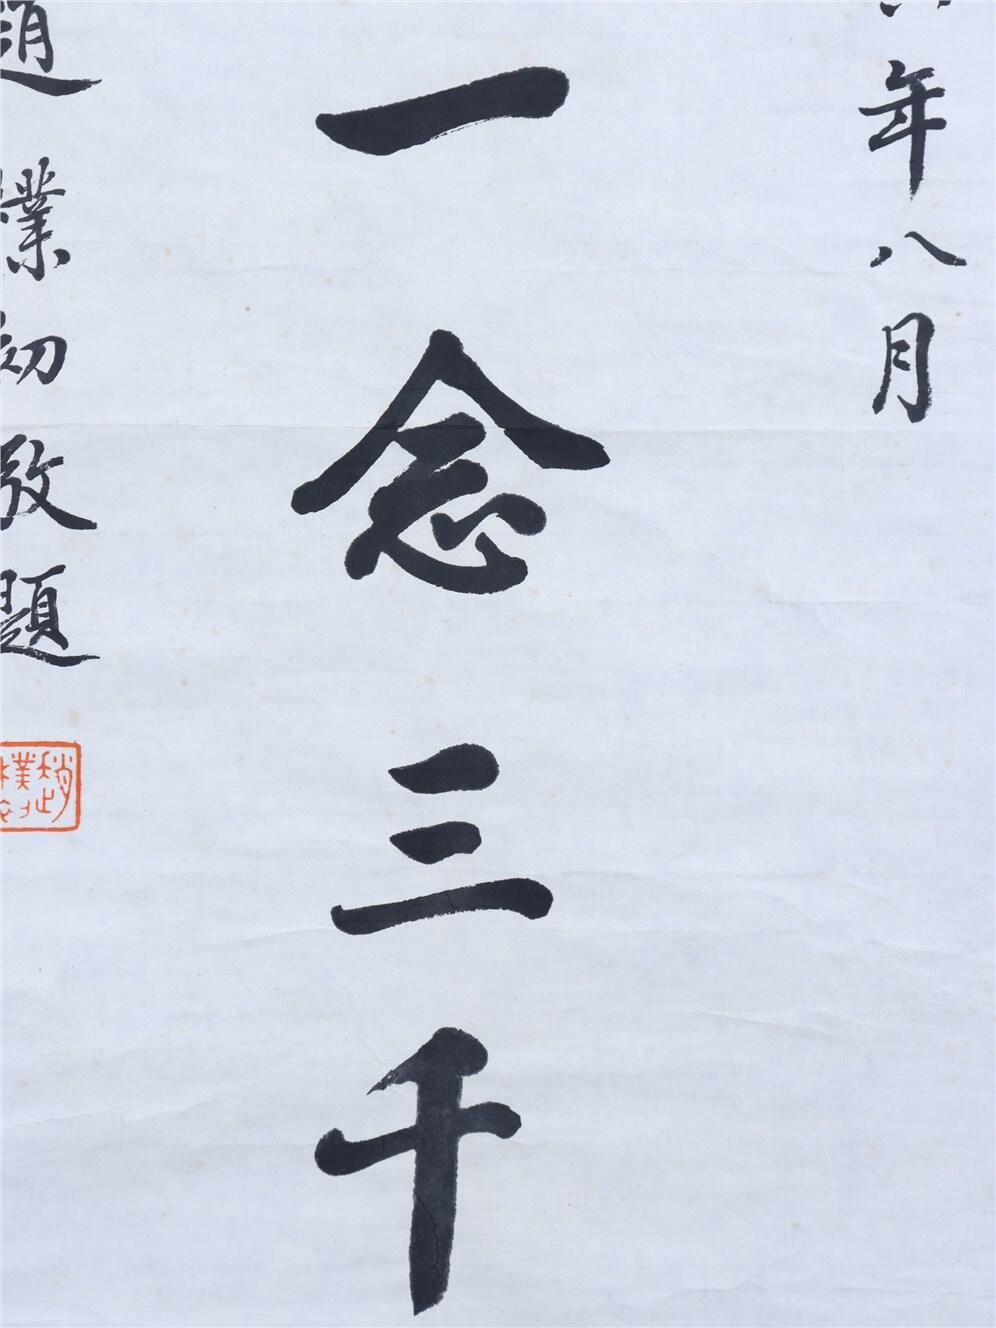 年八月
一念三千
趙樸初敬題
趙樸初